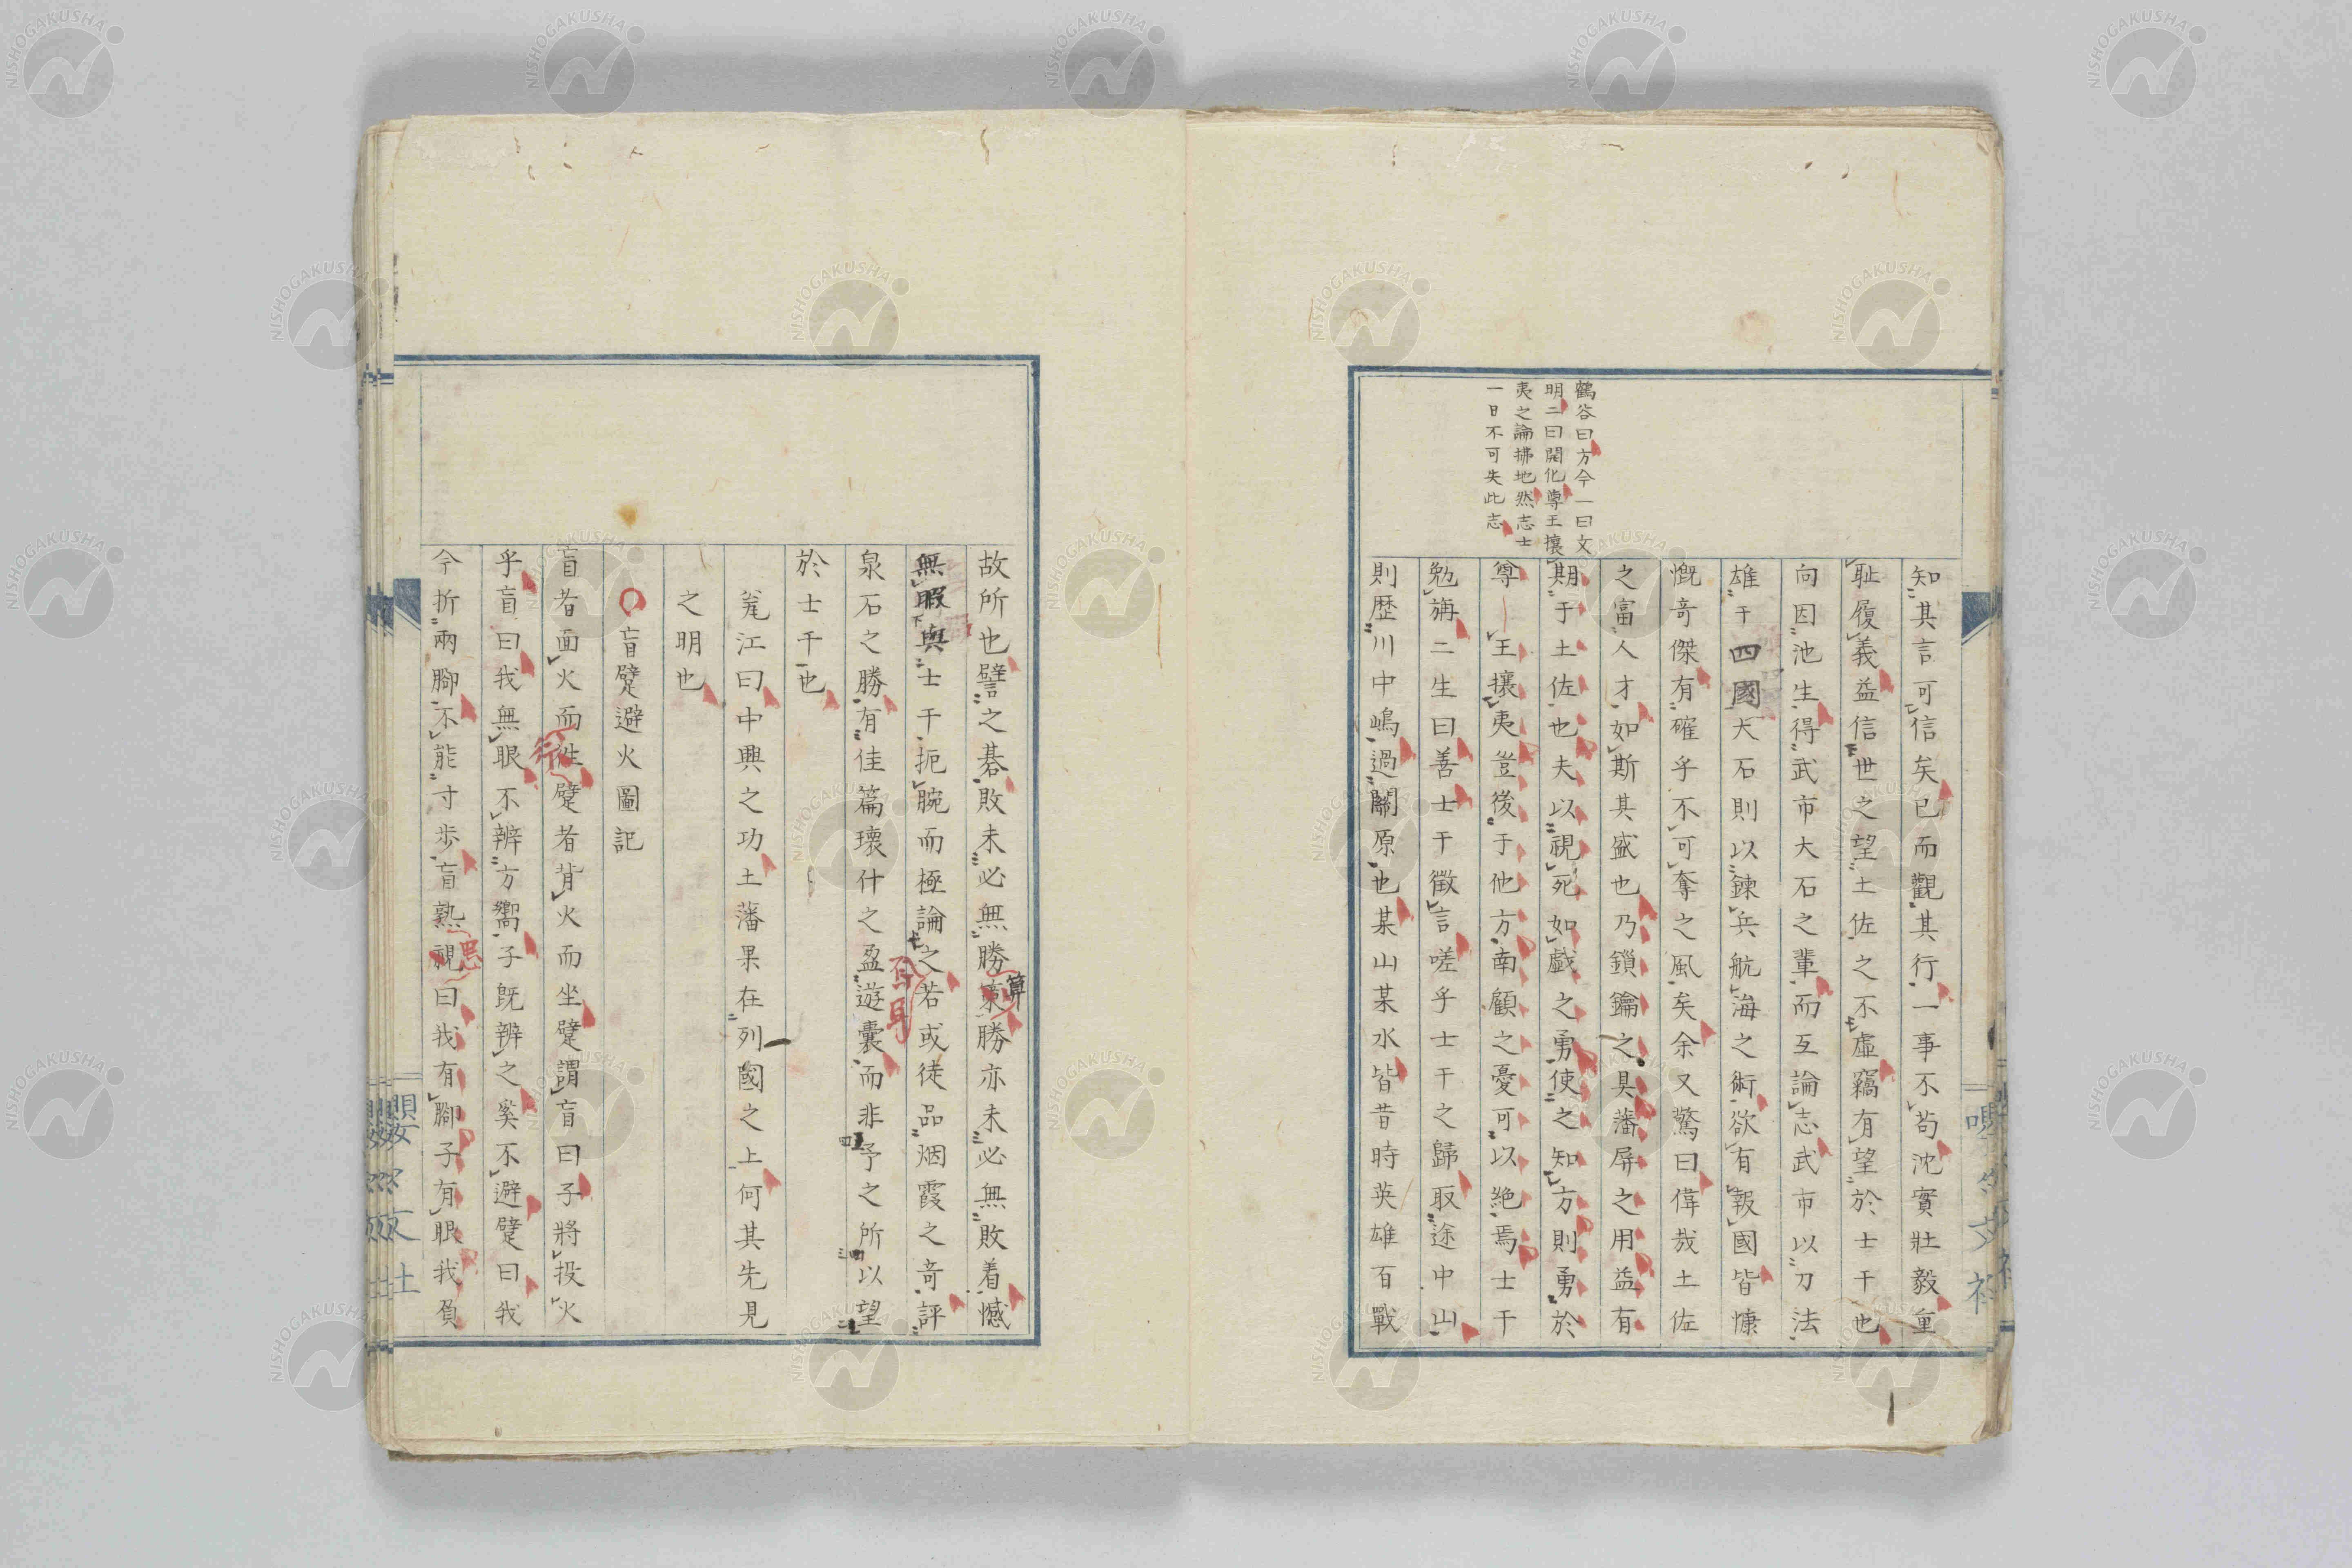 鶴谷曰方今一曰文
明二曰開化尊王攘
夷之論拂地然志士
一日不可失此志
知其言可信矣已而觀其行一事不苟沈實壯毅重
恥履義益信世之望土佐之不虛竊有望於士干也
向因池生得武市大石之輩而互論志武市以刀法
雄干四國大石則以鍊兵航海之術欲有報國皆慷
慨奇傑有確乎不可奪之風矣余又驚曰偉哉土佐
之富人才如斯其盛也乃鎖鑰之具藩屏之用益有
期于土佐也夫以視死如戲之勇使之知方則勇於
尊王攘夷豈後于他方南顧之憂可以絕焉士干
勉旃二生曰善士干徵言嗟乎士干之歸取途中山
則歷川中嶋過關原也某山某水皆昔時英雄百戰
故所也譬之碁敗未必無勝策勝亦未必無敗着憾
算
無暇與士干扼腕而極論之若或徒品烟霞之奇評
泉石之勝有佳篇瓌什之盈遊囊而非予之所以望
於士干也
嵬江曰中興之功土藩果在列國之上何其先見
之明也
盲躄避火圖記
盲者面火而往躄者背火而坐躄謂盲曰子將投火
行
乎盲曰我無眼不辨方嚮子旣辨之奚不避躄曰我
今折兩腳不能寸步盲熟視曰我有腳子有眼我負
思
NISHOGAKUSHA